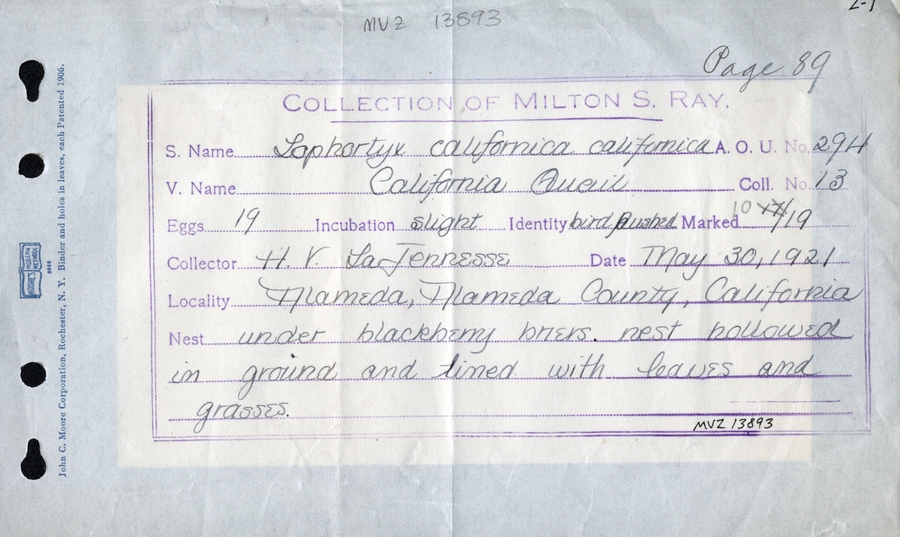 2-1
MVZ 13893
Page 89
COLLECTION OF MILTON S. RAY.
S. Name Lophortyx californica californica A. O. U. No. 294
V. Name California Quail Coll. No. 13
Eggs 19 Incubation slight Identity bird flushed Marked /19
Collector H. V. LaJennesse Date May 30, 1921
Locality Alameda, Alameda County, California
Nest under blackberry briers. nest hollowed
in ground and lined with leaves and
grasses.
MVZ 13893
John C. Moore Corporation, Rochester, N. Y. Binder and holes in leaves, each Patented 1906.
MOORE'S MODERN METHODS